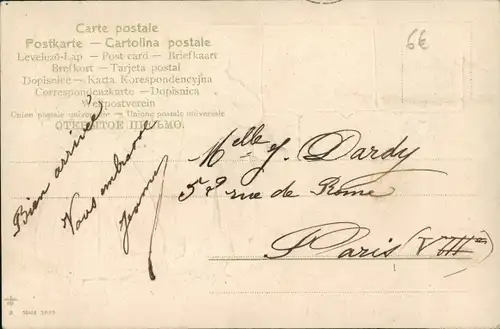 Carte postale
Postkarte — Cartolina postale
Levelezö-Lap — Post card — Briefkaart
Brefkort — Tarjeta postal
Dopisnice — Karta Korespondencyjna
Correspondenzkarte — Dopisnica
Weltpostverein
Union postale universelle — Unione postale universale
ОТКРЫТОЕ ПИСЬМО.
6€
Bien arrivée
Vous embrasse
Jeanne
Melle J. Dardy
59 rue de Rome
Paris (VIIIe)